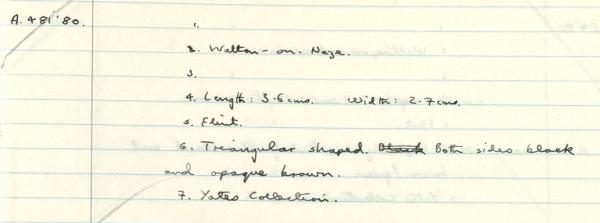 A.481'80.
1.
2. Walton-on-Naze.
3.
4. Length: 3.6cms. Width: 2.7cms.
5. Flint.
6. Triangular shaped. Black Both sides black
and opaque brown.
7. Yates Collection.